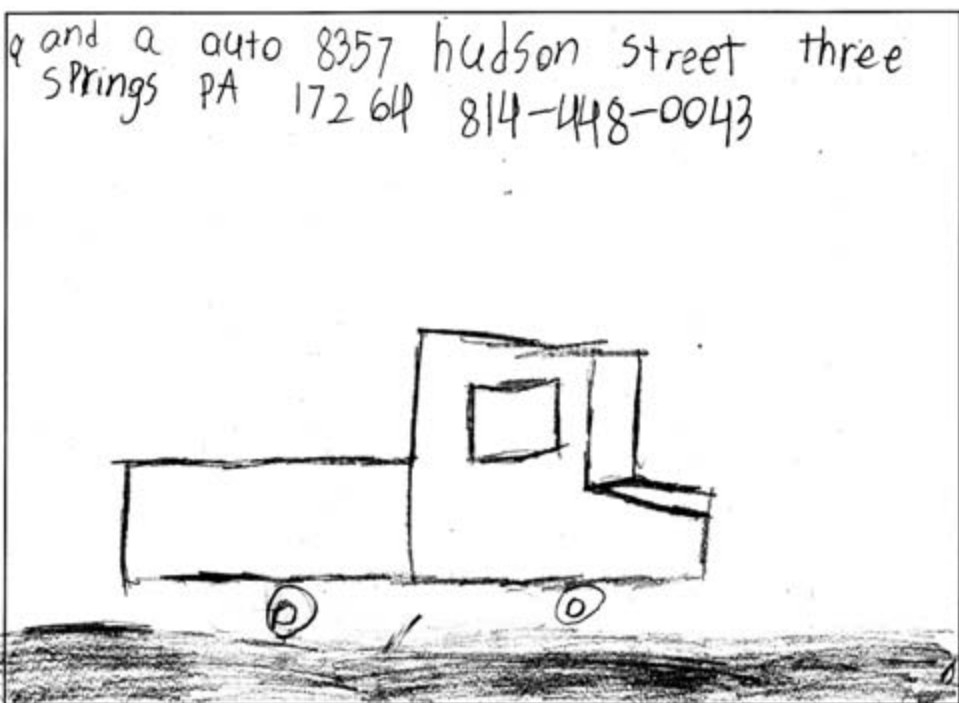 a and a auto 8357 hudson street three
springs PA 17264 814-448-0043